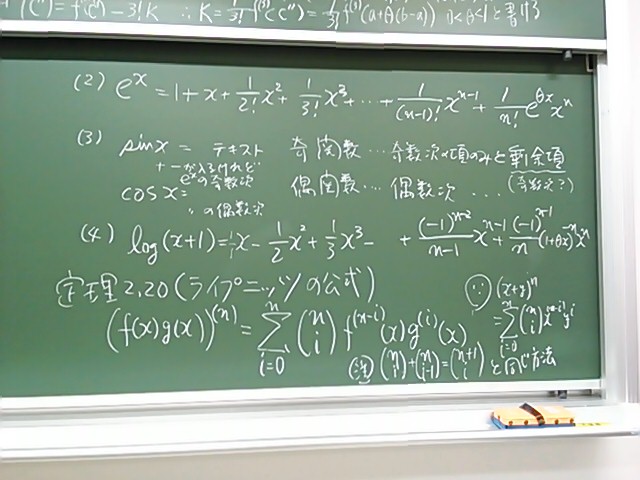 f(c'') = f(c'') - 3!K ∴ K = 1/3! f⁽³⁾(c'') = 1/3! f⁽³⁾(a+θ(b-a)) 0<θ<1と書ける
(2) eˣ = 1 + x + 1/2! x² + 1/3! x³ + … + 1/(n-1)! xⁿ⁻¹ + 1/n! e^θx xⁿ
(3) sin x = テキスト 奇関数… 奇数次の項のみと剰余項
+-が入るけれど
eˣの奇数次 (奇数次?)
cos x = 偶関数… 偶数次 …
〃の偶数次
(4) log(x+1) = 1/1 x - 1/2 x² + 1/3 x³ - + (-1)ⁿ⁻²/n-1 xⁿ⁻¹ + (-1)ⁿ⁻¹/n (1+θx)⁻ⁿxⁿ
定理2.20(ライプニッツの公式)
(f(x)g(x))⁽ⁿ⁾ = Σ_{i=0}^{n} (n i) f⁽ⁿ⁻ⁱ⁾(x)g⁽ⁱ⁾(x)
(x+y)ⁿ
= Σ_{i=0}^{n} (n i) xⁿ⁻ⁱyⁱ
注 (n i) + (n i-1) = (n+1 i) と同じ方法